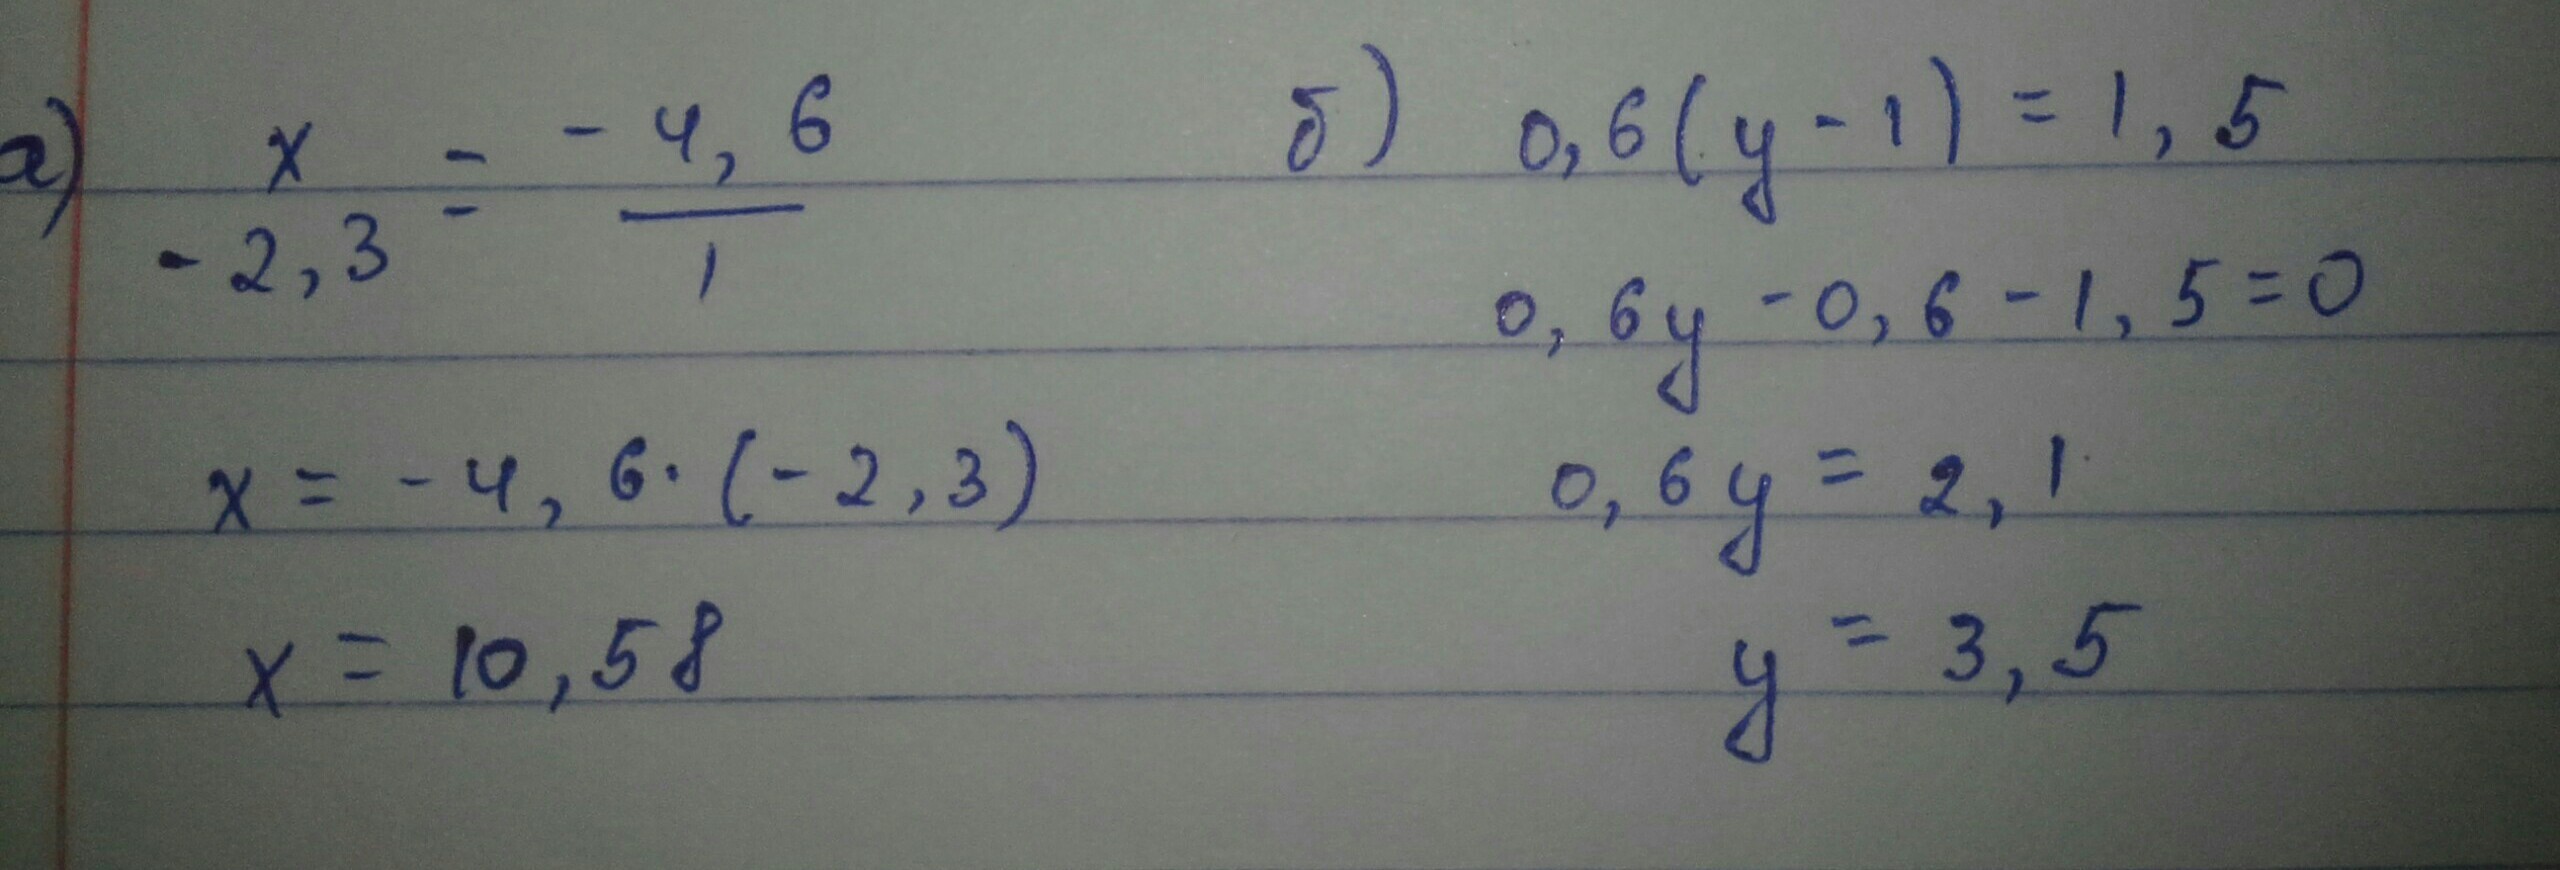 а) x / -2,3 = -4,6 / 1
x = -4,6 · (-2,3)
x = 10,58
б) 0,6(y-1) = 1,5
0,6y - 0,6 - 1,5 = 0
0,6y = 2,1
y = 3,5